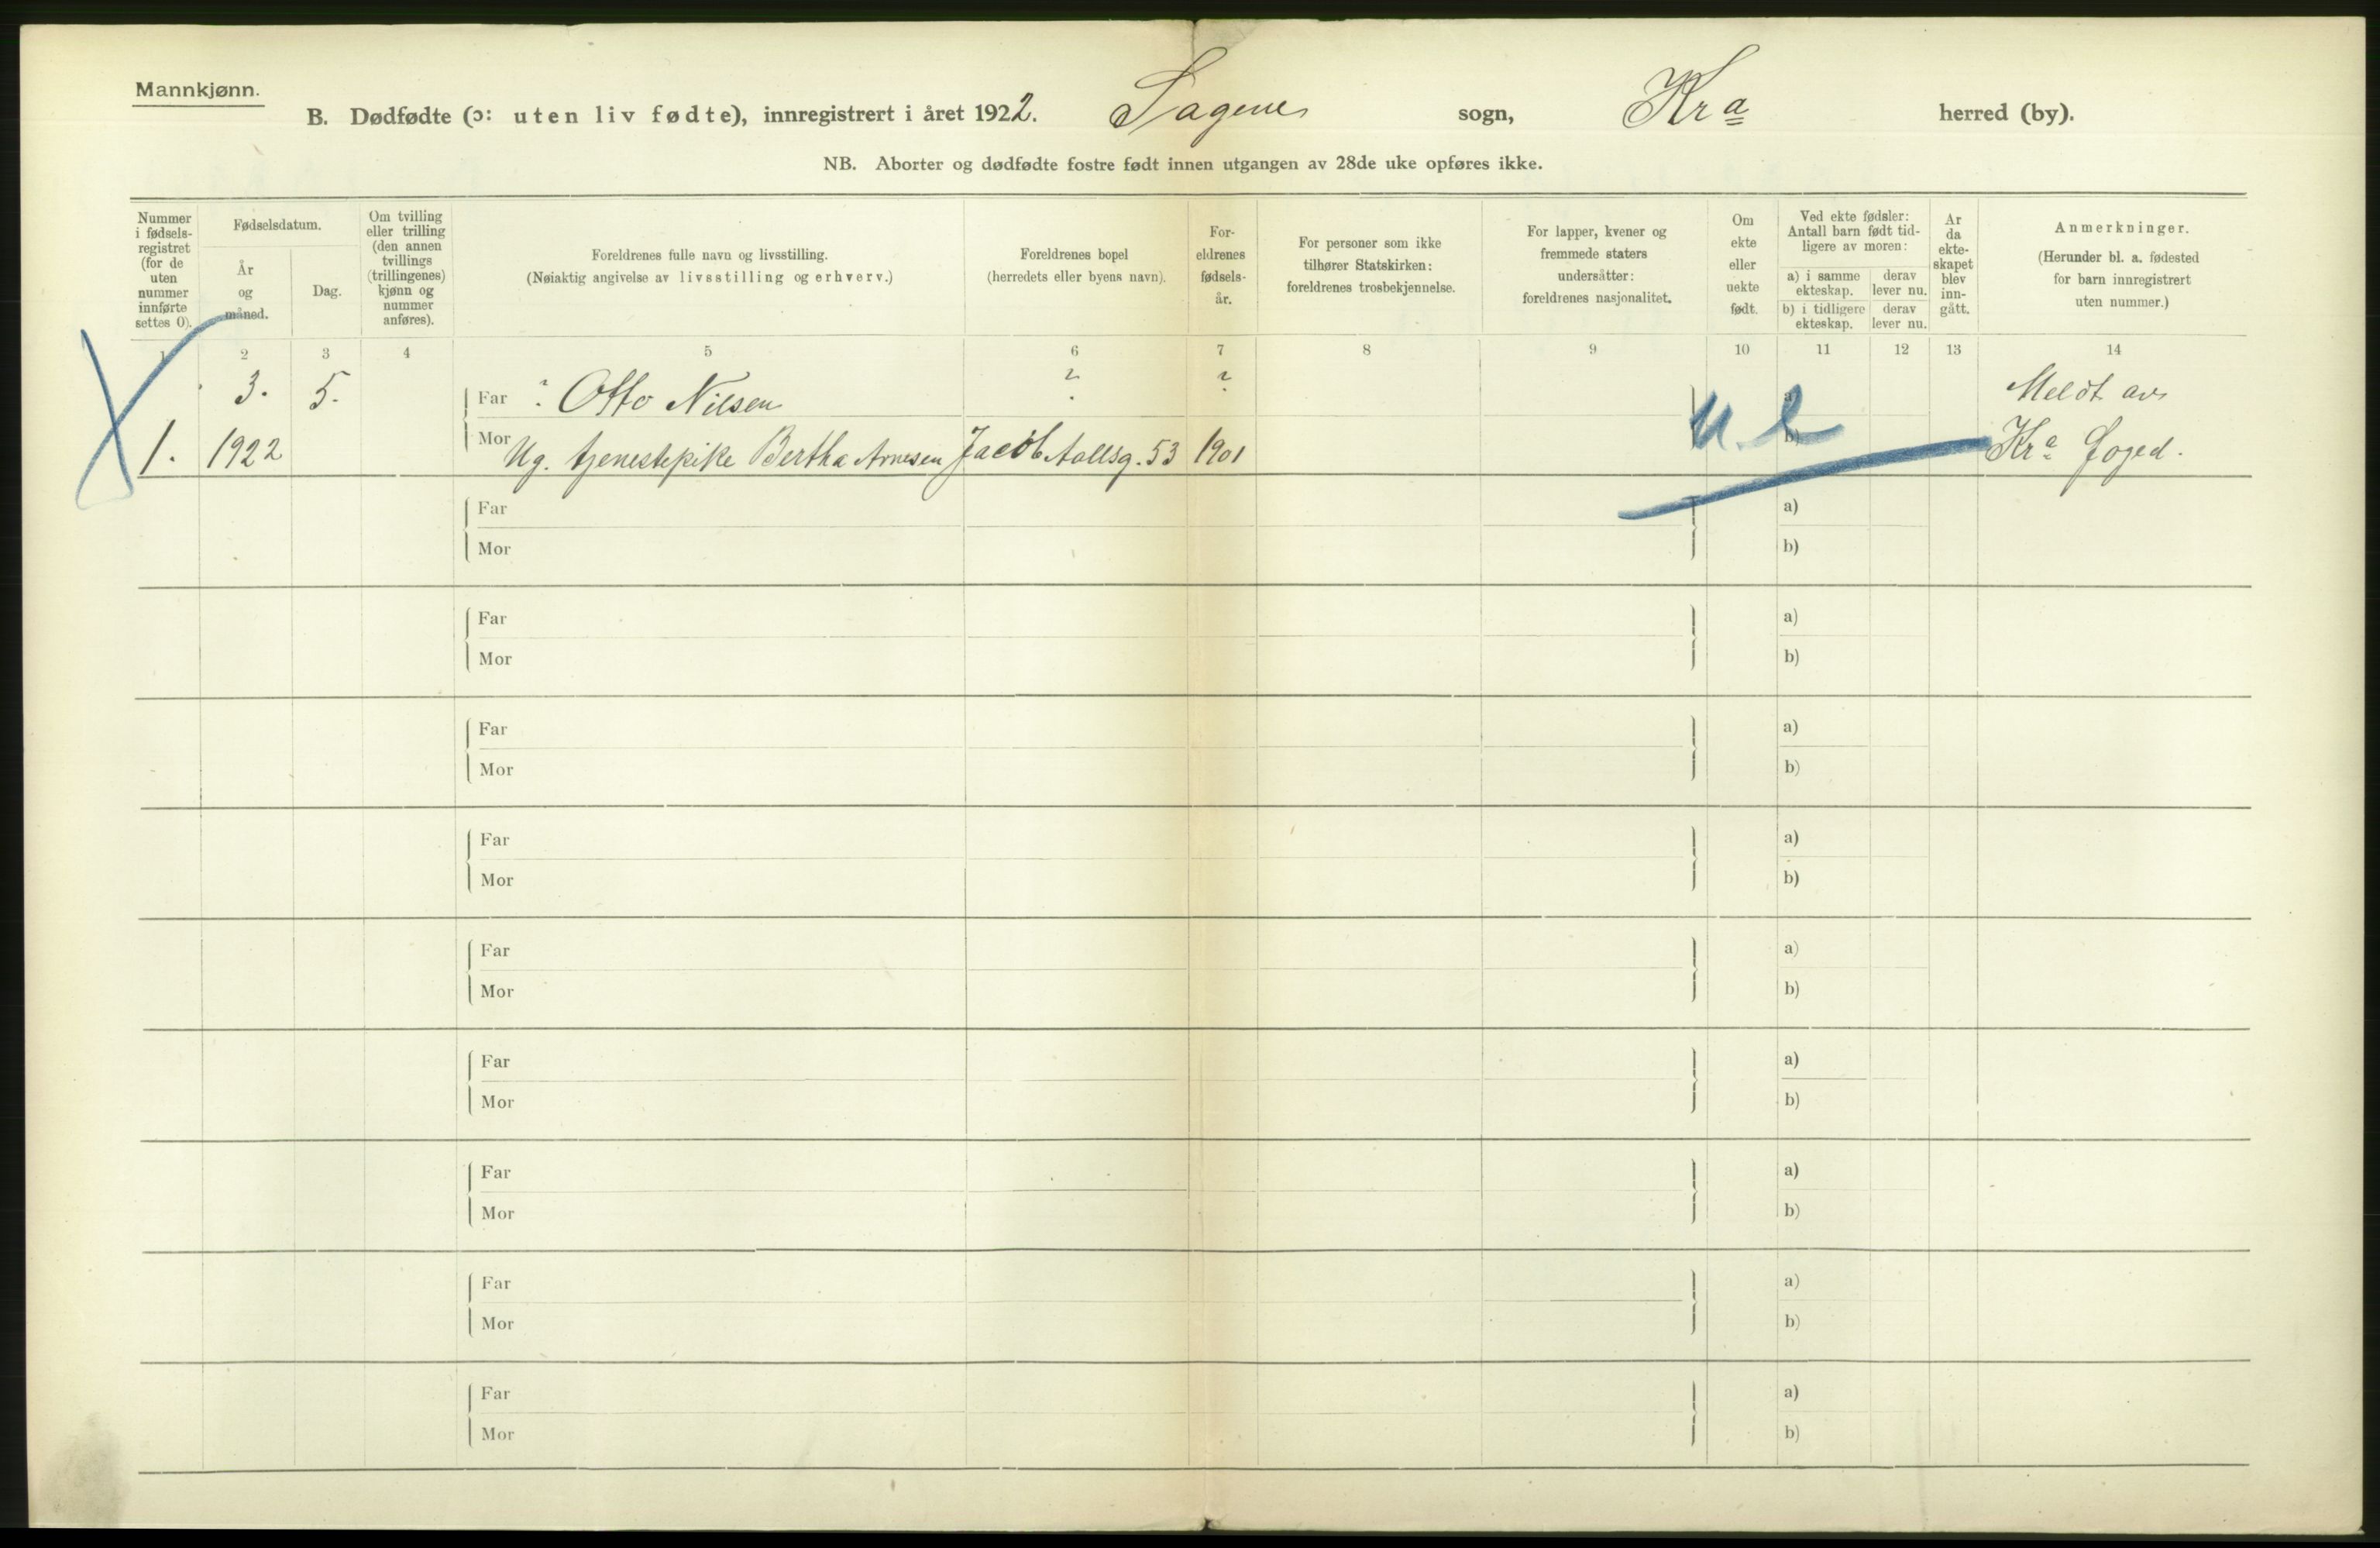 Mannkjønn.
B. Dødfødte (ɔ: uten liv fødte), innregistrert i året 1922. Sagene sogn, Kra herred (by).
NB. Aborter og dødfødte fostre født innen utgangen av 28de uke opføres ikke.
Nummer i fødsels-registret (for de uten nummer innførte settes 0).
Fødselsdatum.
År og måned.
Dag.
Om tvilling eller trilling (den annen tvillings (trillingenes) kjønn og nummer anføres).
Foreldrenes fulle navn og livsstilling.
(Nøiaktig angivelse av livsstilling og erhverv.)
Foreldrenes bopel
(herredets eller byens navn).
For-eldrenes fødsels-år.
For personer som ikke tilhører Statskirken: foreldrenes trosbekjennelse.
For lapper, kvener og fremmede staters undersåtter: foreldrenes nasjonalitet.
Om ekte eller uekte født.
Ved ekte fødsler: Antall barn født tid-ligere av moren:
a) i samme ekteskap.
derav lever nu.
b) i tidligere ekteskap.
derav lever nu.
År da ekte-skapet blev inn-gått.
Anmerkninger.
(Herunder bl. a. fødested for barn innregistrert uten nummer.)
1 2 3 4 5 6 7 8 9 10 11 12 13 14
3. 5. Far ? Otto Nilsen ? ? a) Meldt av
1. 1922 Mor Ug. tjenestepike Bertha Arnesen Jacob Aallsg. 53 1901 u. e b) Kra Foged.
Far a)
Mor b)
Far a)
Mor b)
Far a)
Mor b)
Far a)
Mor b)
Far a)
Mor b)
Far a)
Mor b)
Far a)
Mor b)
Far a)
Mor b)
Far a)
Mor b)